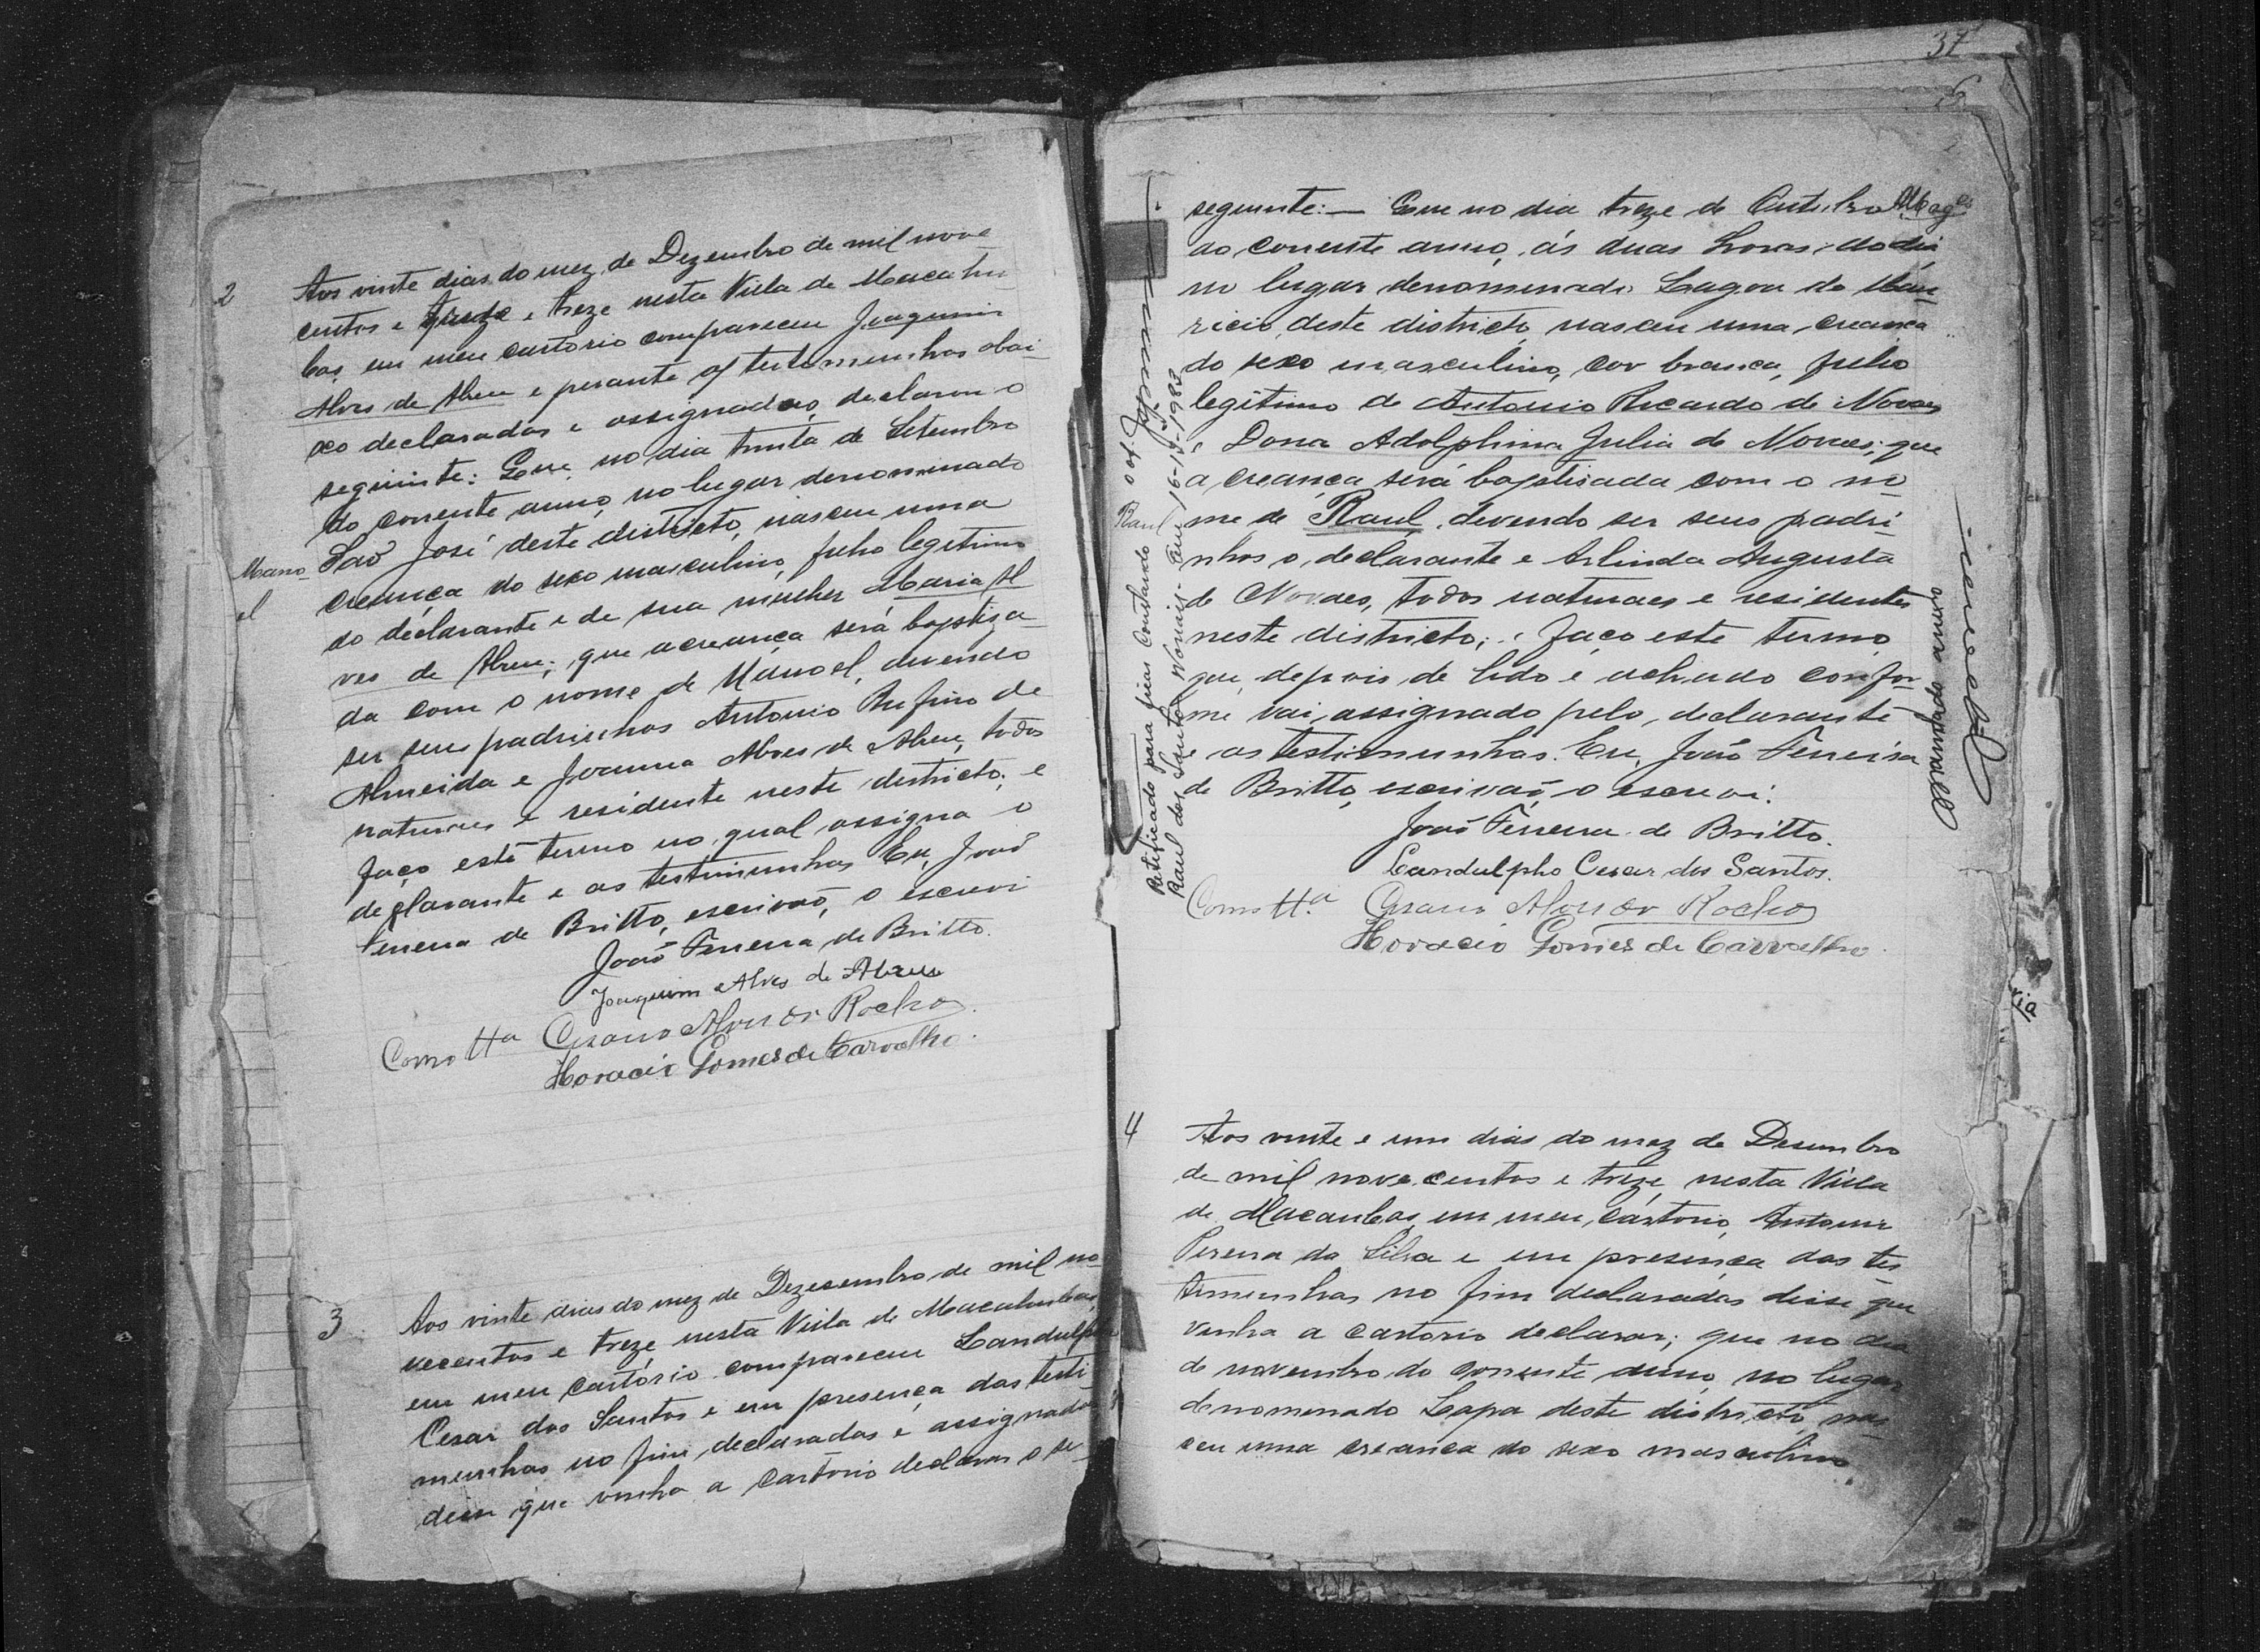 2
Aos vinte dias do mez de Dezembro de mil nove
centos e treze e treze nesta Villa de Macahu
bas em meu cartorio compareceu Joaquim
Alves de Abreu e perante as testemunhas abai
xo declaradas e assignadas, declarou o
seguinte: Que no dia trinta de Setembro
do corrente anno, no lugar denominado
São José deste districto, nasceu uma
Mano-
el
creança do sexo masculino, filho legitimo
do declarante e de sua mulher Maria Al
ves de Abreu; que a creança será baptiza-
da com o nome de Manoel, devendo
ser seus padrinhos Antonio Rufino de
Almeida e Joanna Alves de Abreu, todos
naturaes e residente neste districto; e
faço este termo no qual assigna o
declarante e as testimunhas Eu, João
Ferrera de Britto, escrivaõ, o escrevi
João Ferrera de Britto.
Joaquim Alves de Abreu
Como ttª Alves da Rocha
Horacio Gomes de Carvalho.
3
Aos vinte dias do mez de Dezecembro de mil no-
vecentos e treze nesta Villa de Macahubas,
em meu cartorio compareceu Landulpho
Cesar dos Santos e em presença das testi-
munhas no fim declaradas e assignadas
disse que vinha a cartorio declarar o se-
37
6
seguinte:— Que no dia treze de Outubro
do corrente anno, ás duas horas do dia
no lugar denominado Lagoa do Mau-
ricio, deste districto, nasceu uma creança
do sexo masculino, cor branca, filho
legitimo de Antonio Ricardo de Novaes
e Dona Adolphina Julia de Novaes; que
a creança será baptisada com o no
Raul
me de Raul, devendo ser seus padri
nhos o declarante e Arlinda Augusta
de Novaes, todos naturaes e residentes
neste districto; e faço este termo
que, depois de lido e achado confor-
me vai assignado pelo declarante
e as testimunhas. Eu, João Ferreira
de Britto, escrivaõ, o escrevi.
João Ferrera de Britto.
Landulpho Cesar dos Santos.
Como ttª Alves da Rocha
Horacio Gomes de Carvalho.
Retificado para fins Constando o of.
Raul dos Santos Novais. Em 16-12-1983
4
Aos vinte e um dias do mez de Desembro
de mil nove centos e treze nesta Villa
de Macaubas em meu cartorio, Antonio
Pereira da Silva e em presença das tes
timunhas no fim declaradas disse que
vinha a cartorio declarar; que no dia
de novembro do corrente anno, no lugar
denomenado Lapa deste districto, nas
ceu uma creança do sexo masculino,
ria